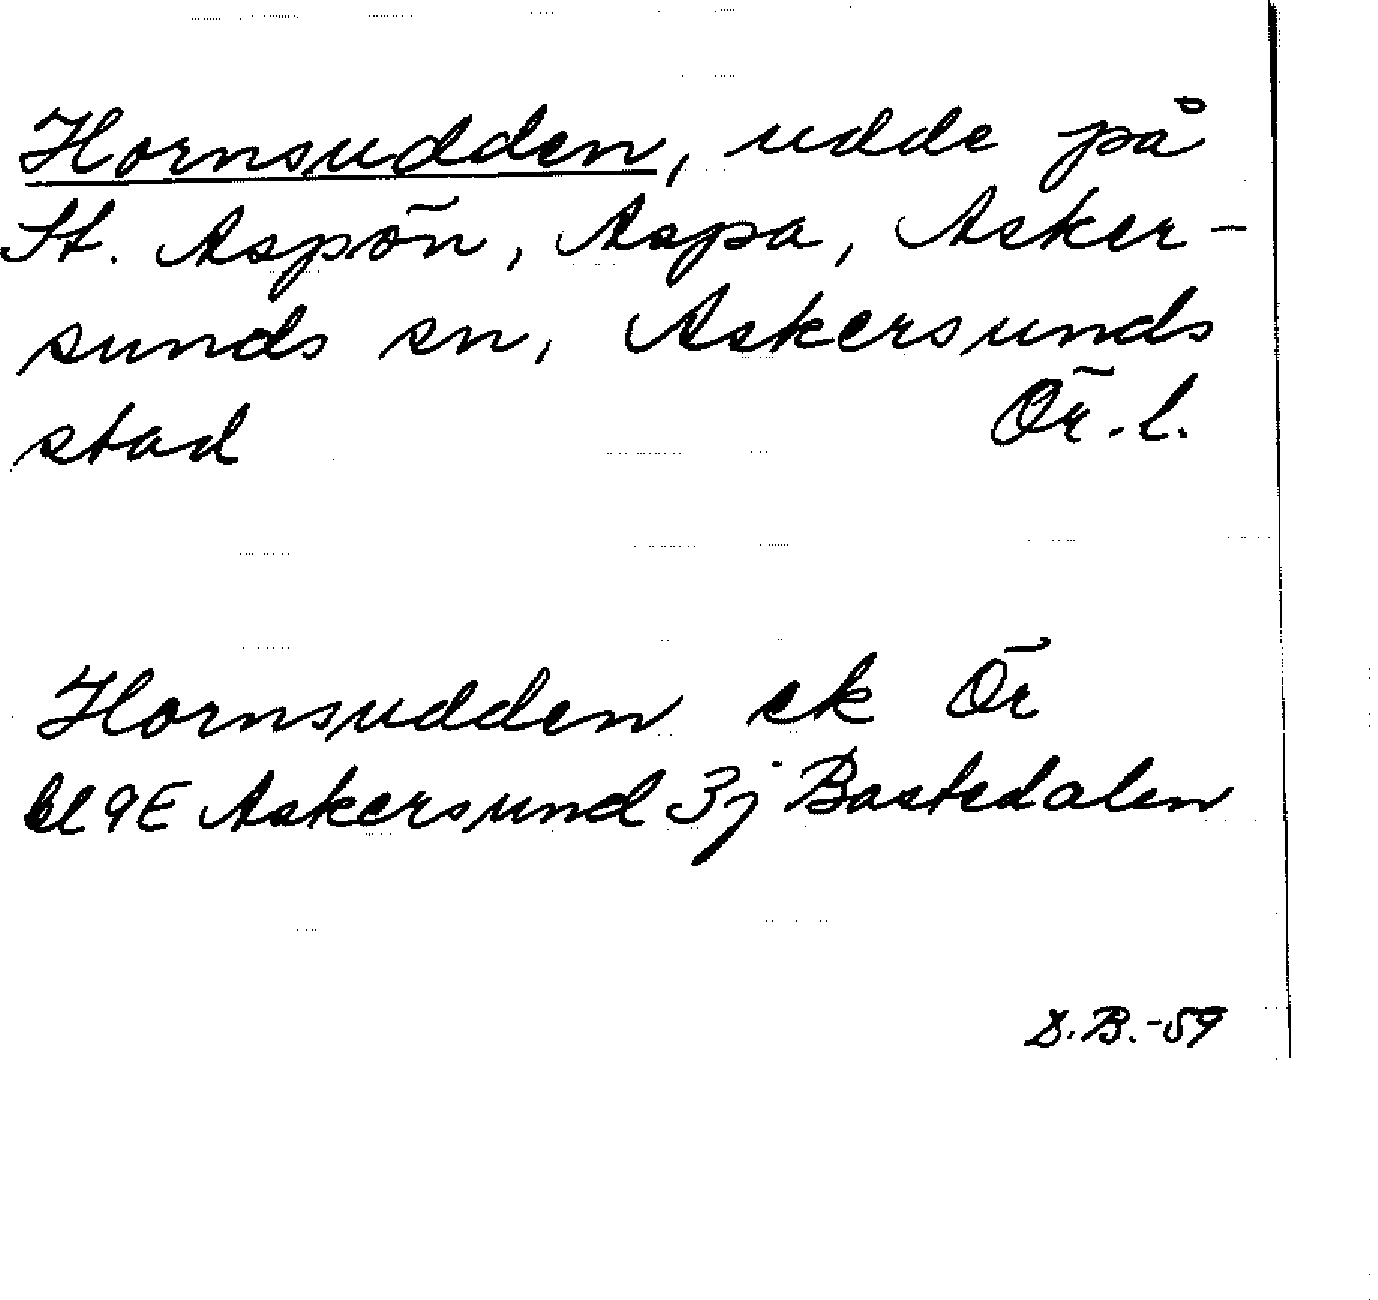 Hornsudden, udde på
St. Aspön, Aspa, Asker-
sunds sn, Askersunds
stad Ör. l.
Hornsudden ek Ör
bl 9E Askersund 3j Bastedalen
D.B.-59